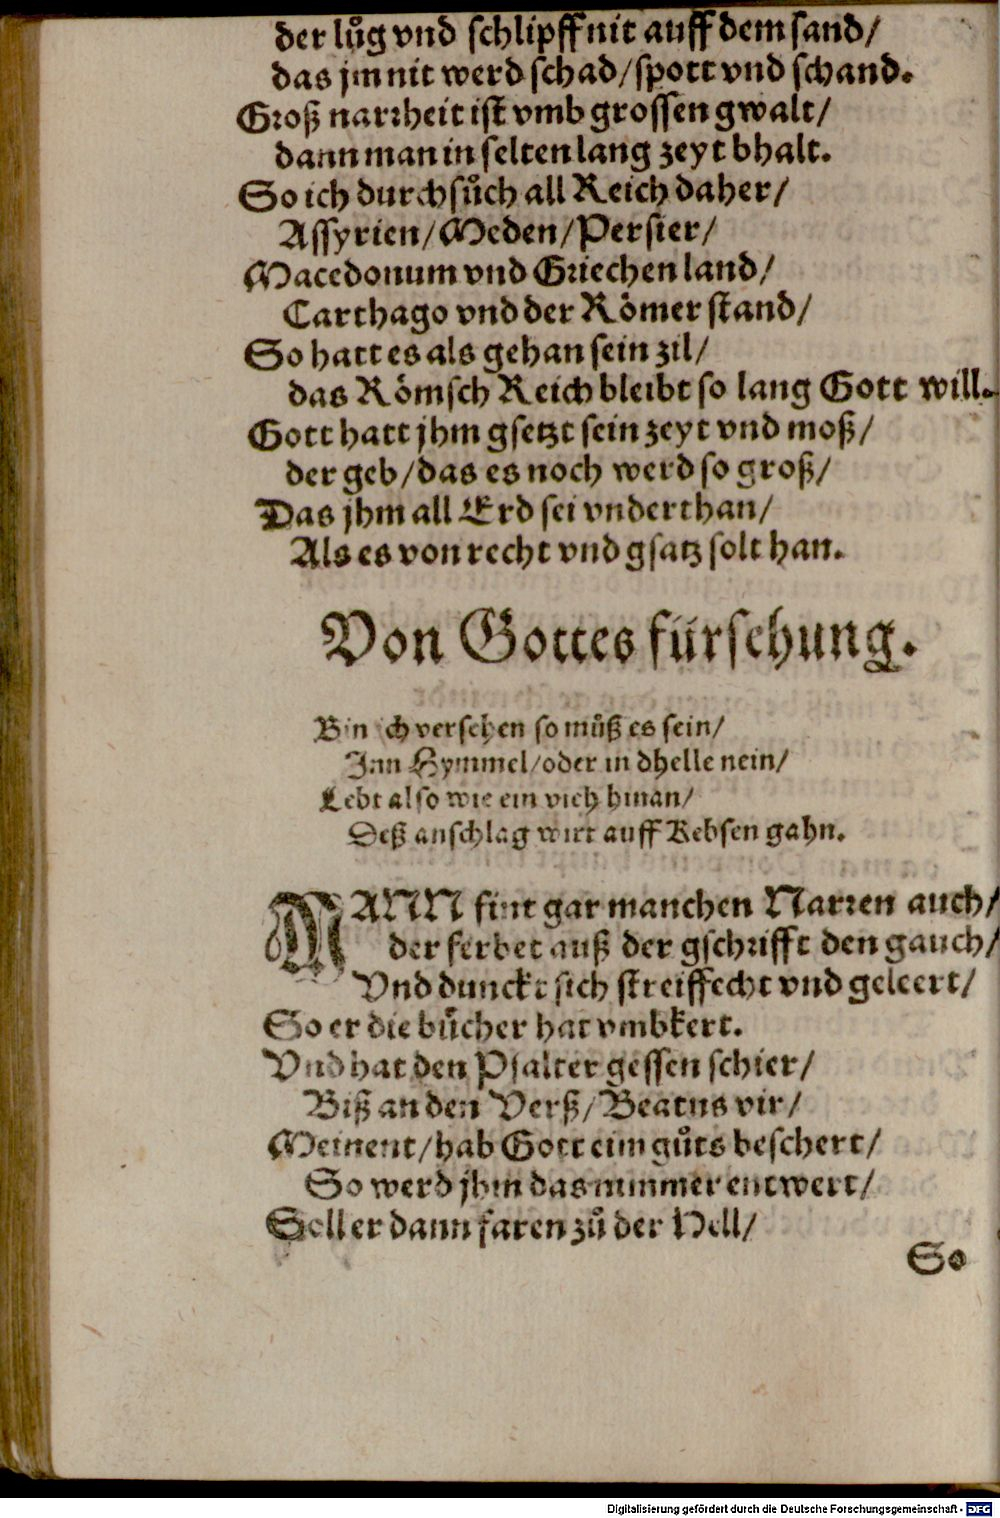 der lůg vnd schlipff nit auff dem sand/
das jm nit werd schad/spott vnd schand.
Groß narrheit ist vmb grossen gwalt/
dann man in selten lang zeyt bhalt.
So ich durchsůch all Reich daher/
Assyrien/Meden/Persier/
Macedonum vnd Griechen land/
Carthago vnd der Römer stand/
So hatt es als gehan sein zil/
das Römsch Reich bleibt so lang Gott will.
Gott hatt jhm gsetzt sein zeyt vnd moß/
der geb/das es noch werd so groß/
Das jhm all Erd sei vnderthan/
Als es von recht vnd gsatz solt han.
Von Gottes fürsehung.
Bin ich versehen so můß es sein/
Inn Hymmel/oder in dhelle nein/
Lebt also wie ein vieh hinan/
Deß anschlag wirt auff Kebsen gahn.
MANN fint gar manchen Narren auch/
der ferbet auß der gschrifft den gauch/
Vnd dunckt sich streiffecht vnd geleert/
So er die bůcher hat vmbkert.
Vnd hat den Psalter gessen schier/
Biß an den Verß/Beatus vir/
Meinent/hab Gott eim gůts beschert/
So werd jhm das nimmer entwert/
Soll er dann faren zů der Hell/
So
Digitalisierung gefördert durch die Deutsche Forschungsgemeinschaft - DFG